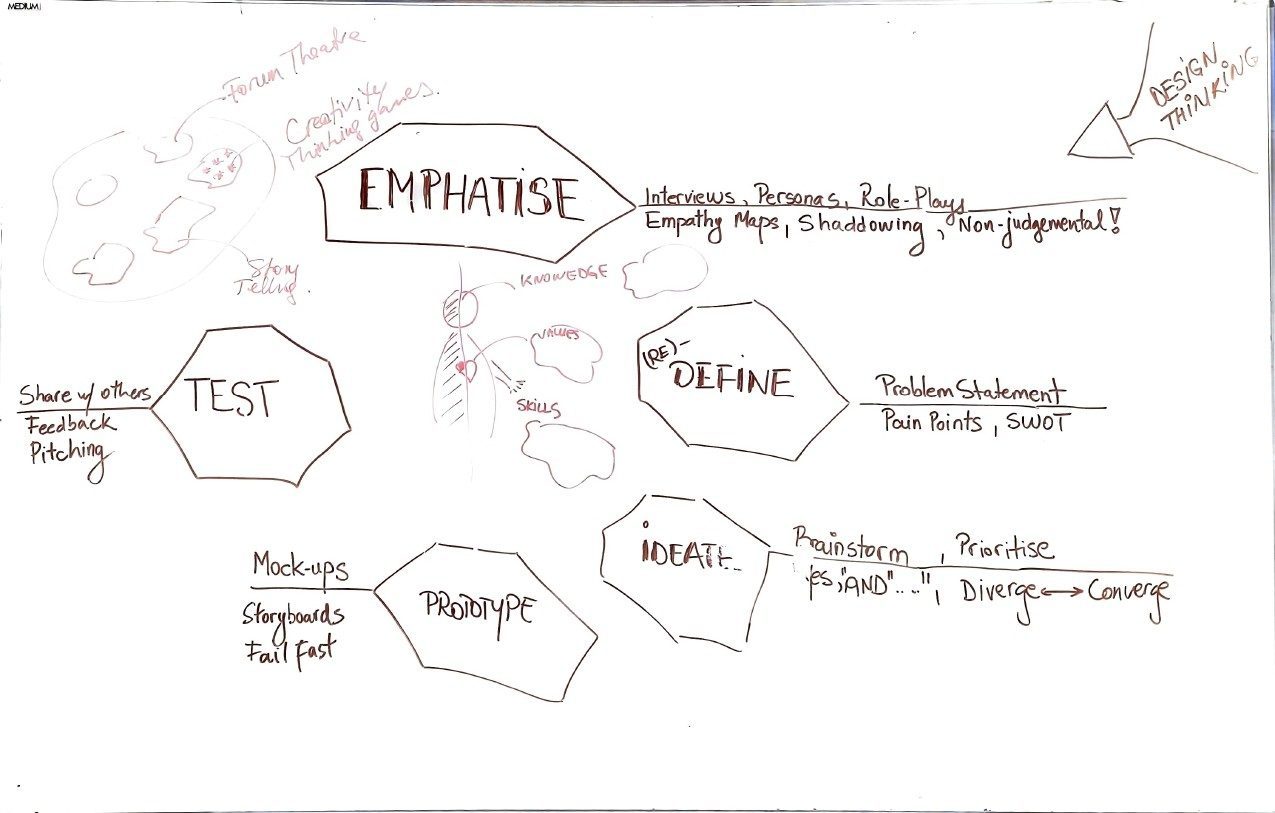 MEDIUM
Forum Theatre
Creativity
Thinking games.
Story
Telling.
DESIGN
THINKING
EMPHATISE
Interviews, Personas, Role-Plays
Empathy Maps, Shaddowing, Non-judgemental!
KNOWEDGE
VALUES
SKILLS
(RE)-
DEFINE
Problem Statement
Pain Points, SWOT
IDEATE
Brainstorm, Prioritise
yes, "AND"...", Diverge ↔ Converge
PROTOTYPE
Mock-ups
Storyboards
Fail Fast
TEST
Share w/ others
Feedback
Pitching